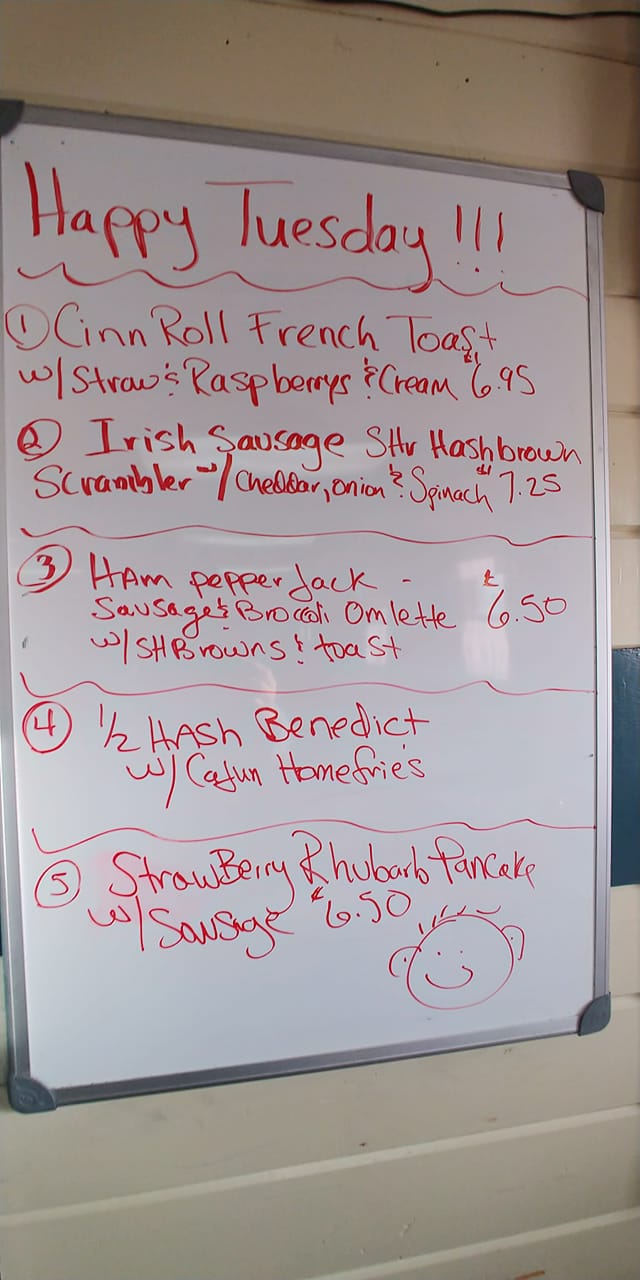 Happy Tuesday !!!
① Cinn Roll French Toast
w/ Straw's Raspberrys & Cream $6.95
② Irish Sausage SHr Hashbrown
Scrambler w/ Cheddar, onion & Spinach $7.25
③ HAm pepper Jack -
Sausage & Broccoli Omlette $6.50
w/ SHBrowns & toast
④ 1/2 HASH Benedict
w/ Cajun Homefries
⑤ StrawBerry Rhubarb Pancake
w/ Sausage $6.50